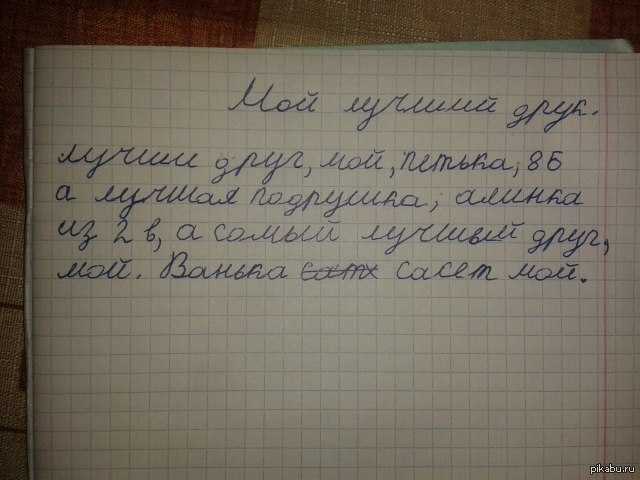 Мой лучший друк.
лучши друг, мой, петька, 8б
а лучшая подрушка, алинка
из 2 в, а сомый лучшый друг,
мой. Ванька сасет мой.
pikabu.ru